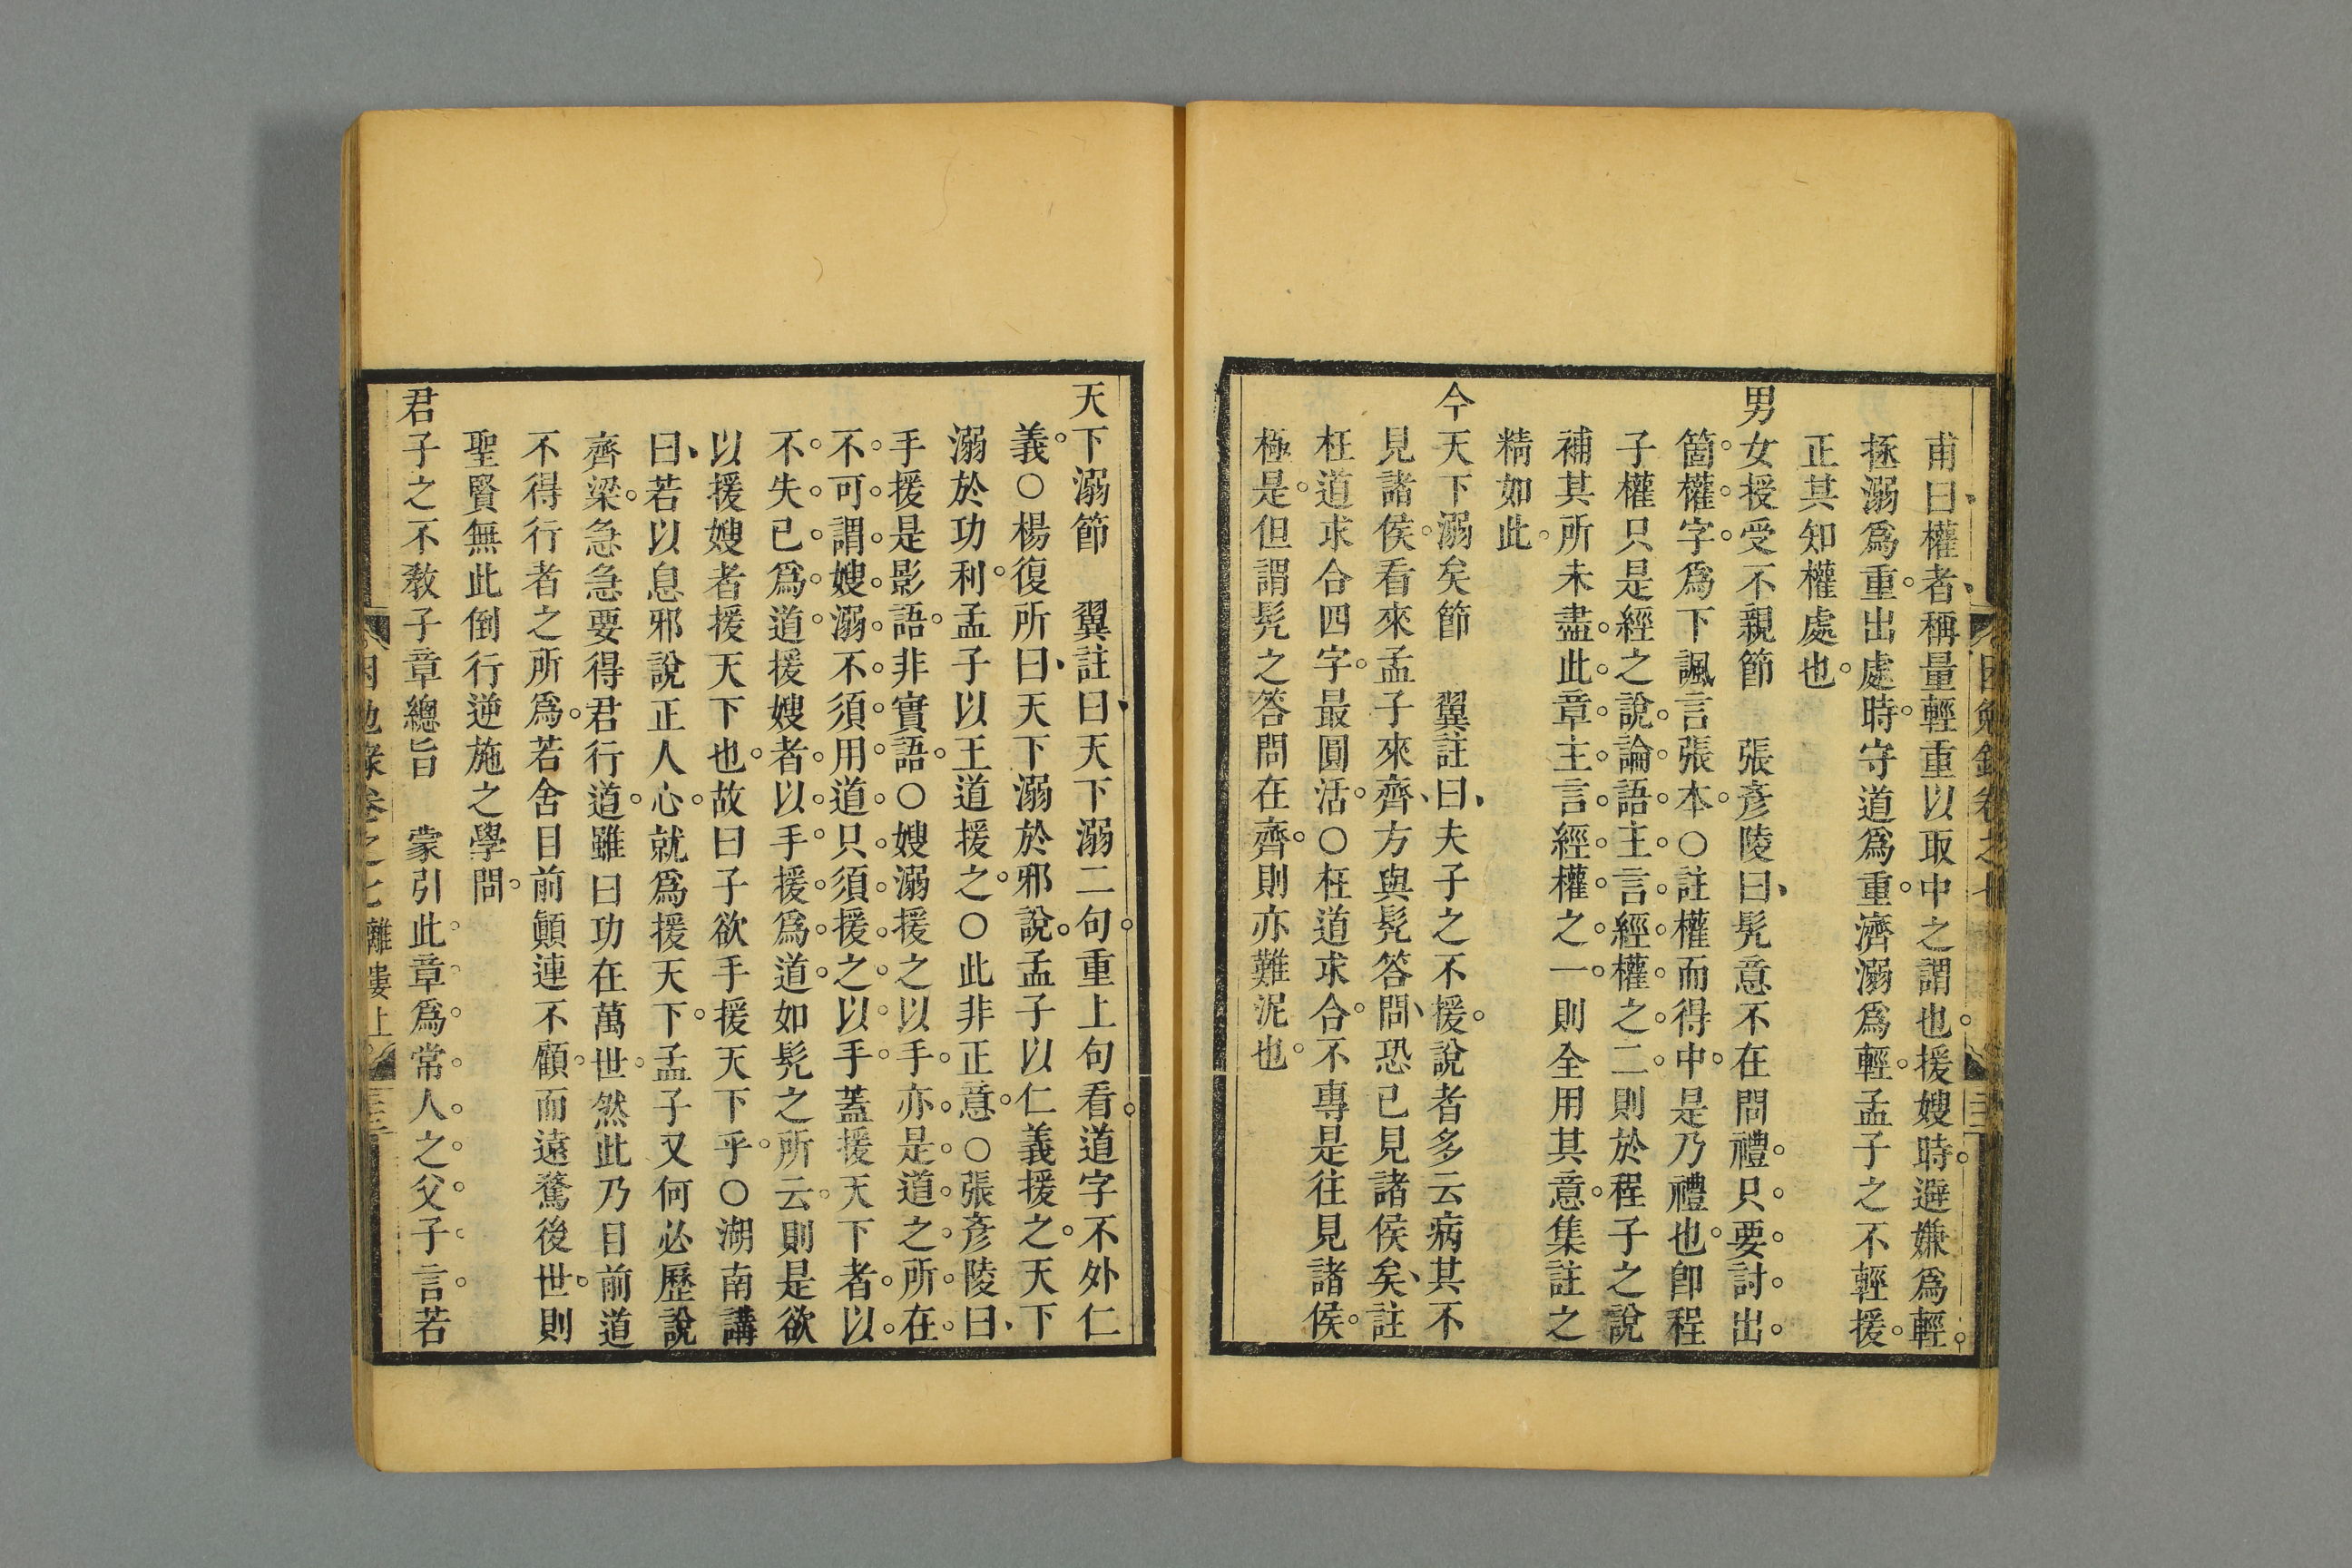 甫曰權者稱量輕重以取中之謂也援嫂時避嫌爲輕
拯溺爲重出處時守道爲重濟溺爲輕孟子之不輕援
正其知權處也
男女援受不親節　張彥陵曰髠意不在問禮只要討出
箇權字爲下諷言張本○註權而得中是乃禮也卽程
子權只是經之說論語主言經權之二則於程子之說
補其所未盡此章主言經權之一則全用其意集註之
精如此
今天下溺矣節　翼註曰夫子之不援說者多云病其不
見諸侯看來孟子來齊方與髠答問恐已見諸侯矣註
枉道求合四字最圓活○枉道求合不專是往見諸侯
極是但謂髠之答問在齊則亦難泥也
天下溺節　翼註曰天下溺二句重上句看道字不外仁
義○楊復所曰天下溺於邪說孟子以仁義援之天下
溺於功利孟子以王道援之○此非正意○張彥陵曰
手援是影語非實語○嫂溺援之以手亦是道之所在
不可謂嫂溺不須用道只須援之以手蓋援天下者以
不失已爲道援嫂者以手援爲道如髠之所云則是欲
以援嫂者援天下也故曰子欲手援天下乎○湖南講
曰若以息邪說正人心就爲援天下孟子又何必歷說
齊梁急急要得君行道雖曰功在萬世然此乃目前道
不得行者之所爲若舍目前顚連不顧而遠騖後世則
聖賢無此倒行逆施之學問
君子之不教子章總旨　蒙引此章爲常人之父子言若
卷之七 離婁上